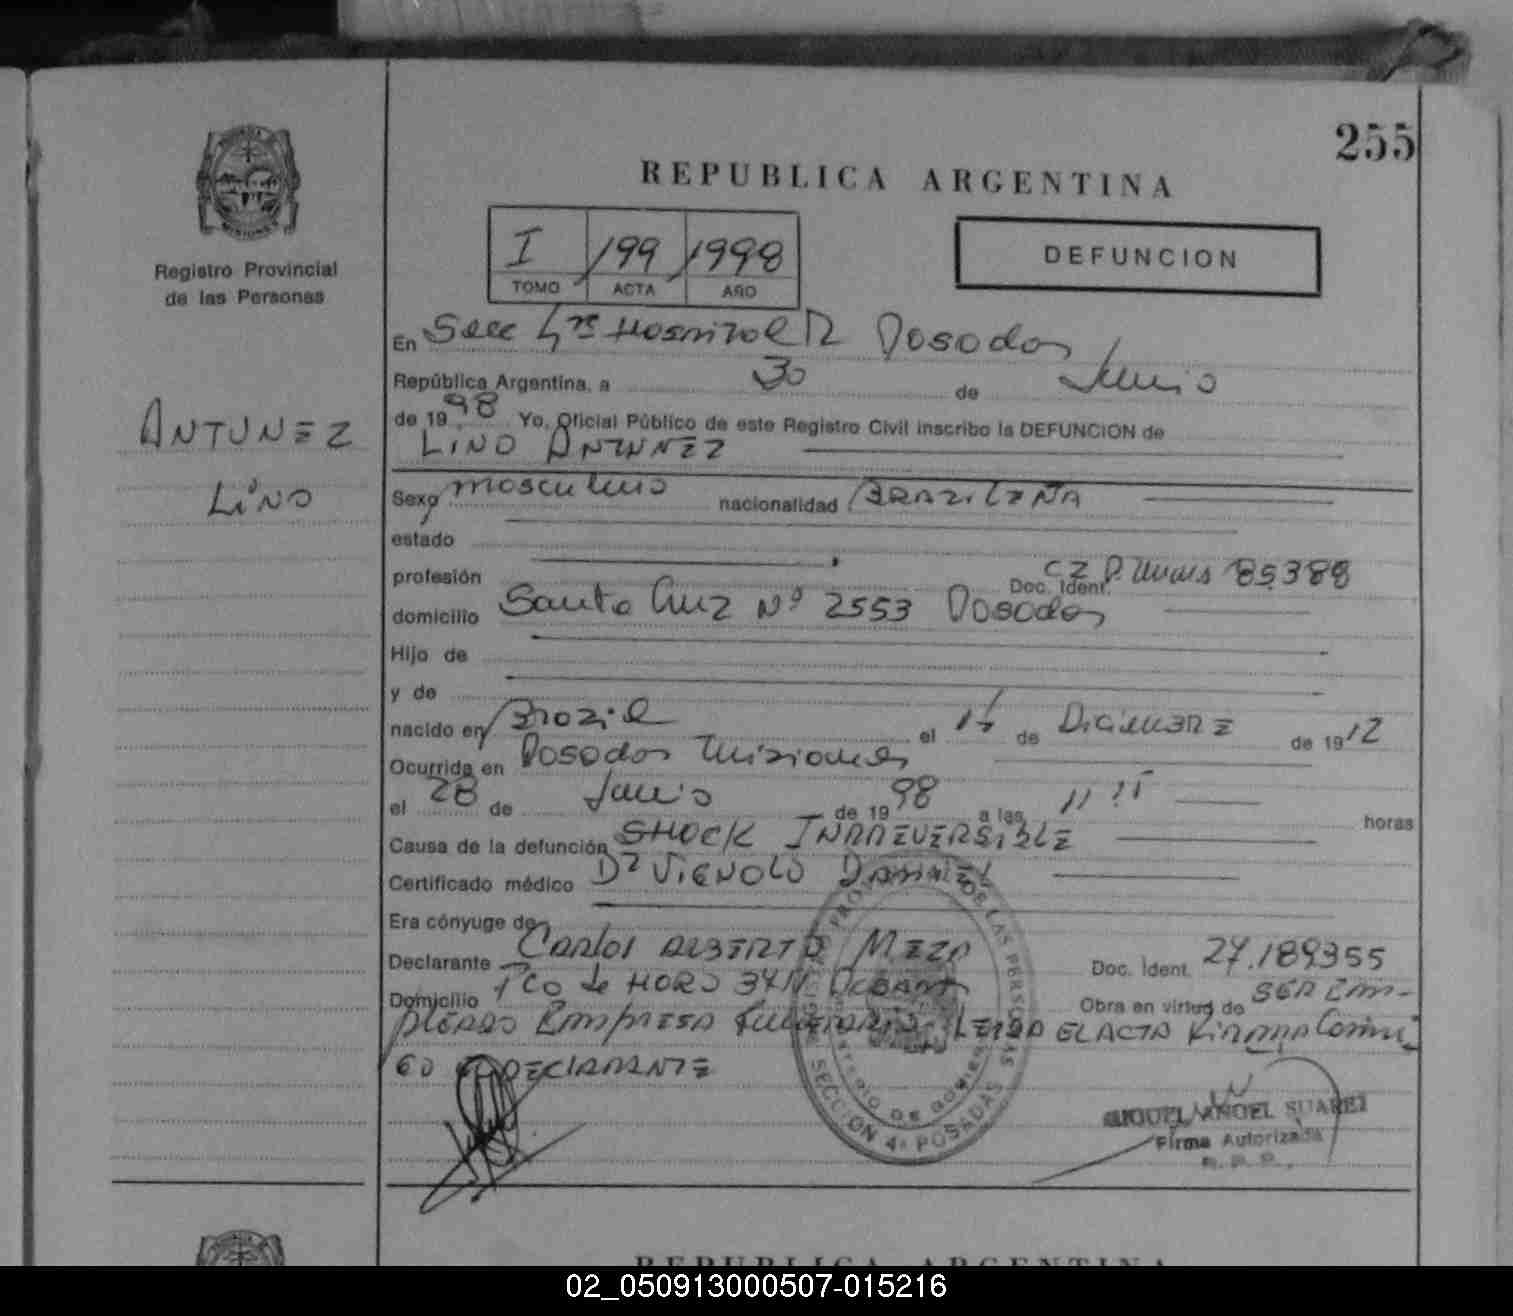 255
REPUBLICA ARGENTINA
I 199 1998
TOMO ACTA AÑO
DEFUNCION
Registro Provincial
de las Personas
ANTUNEZ
LINO
En Secc 4ta Hospital R Posadas
República Argentina, a 30 de Junio
de 1998 Yo, Oficial Público de este Registro Civil inscribo la DEFUNCION de
LINO ANTUNEZ
Sexo masculino nacionalidad BRAZILEÑA
estado
profesión Doc. Ident. CZ P. 85388
domicilio Santa Cruz Nº 2553 Posadas
Hijo de
y de
nacido en Brazil el de Diciembre de 1912
Ocurrida en Posadas Misiones
el 28 de Junio de 1998 a las 11 15 horas
Causa de la defunción SHOCK IRREVERSIBLE
Certificado médico Dr VIGNOLO DANIEL
Era cónyuge de
Declarante Carlos ALBERTO MEZA Doc. Ident. 27.189355
Domicilio Pco de HORO 3411 Obra en virtud de SER EM-
PLEADO EMPRESA FUNERARIA. LEIDA EL ACTA FIRMA
GO EL DECLARANTE
REGISTRO PROVINCIAL DE LAS PERSONAS
MINISTERIO DE GOBIERNO
SECCION 4a POSADAS
MIGUEL ANGEL SUAREZ
Firma Autorizada
R. P. P.
REPUBLICA ARGENTINA
02_050913000507-015216